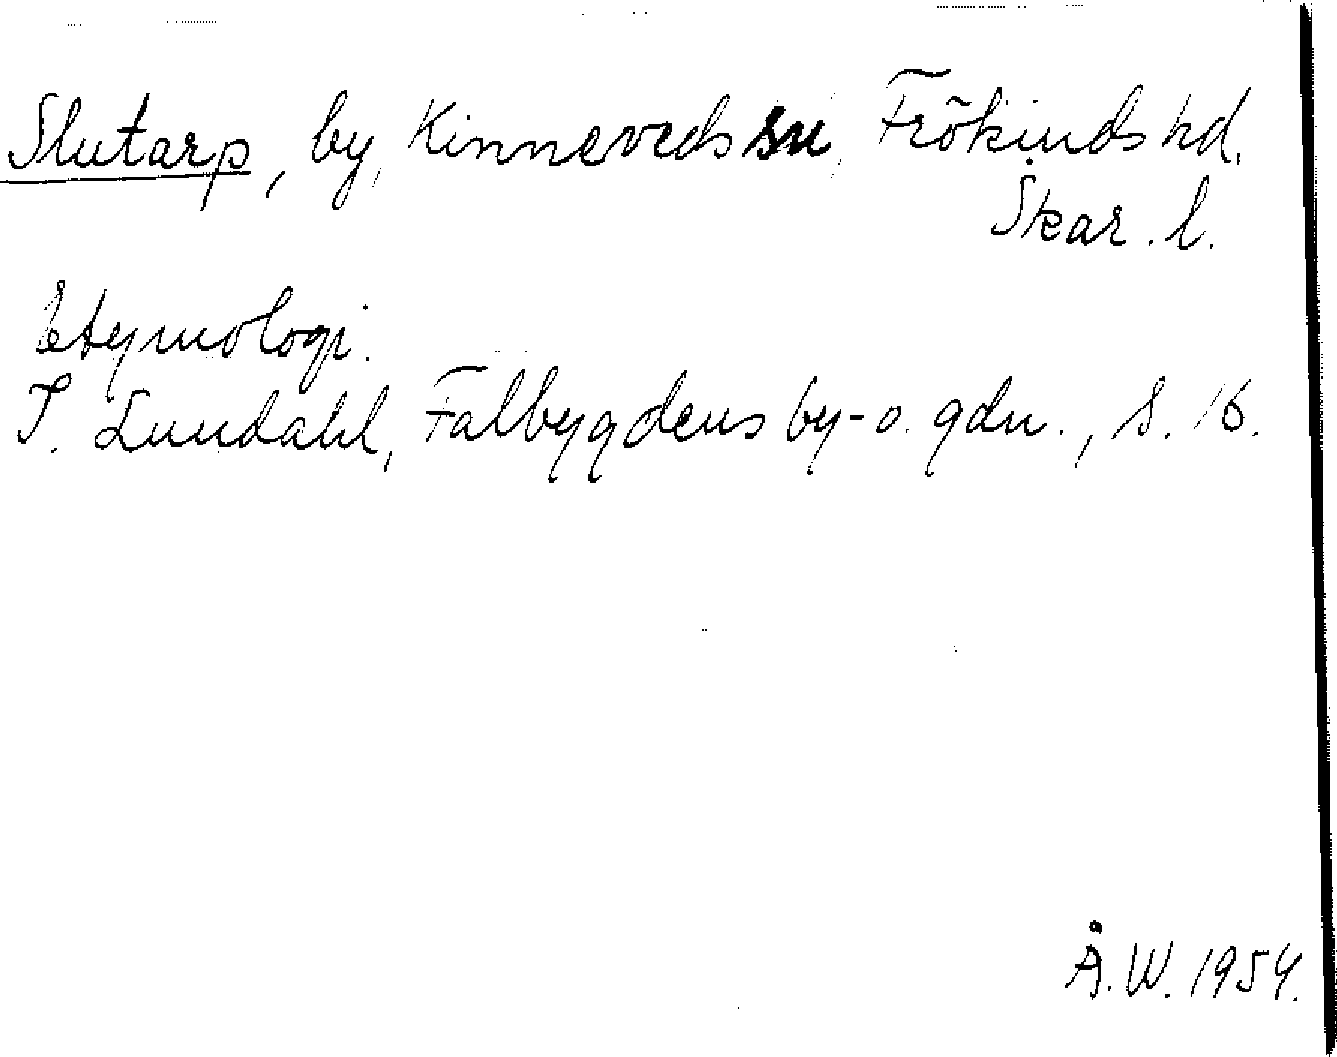 Slutarp, by, Kinneveds sn, Frökinds hd.
Skar. l.
Etymologi.
I. Lundahl, Falbygdens by- o. gdn., s. 16.
Å. W. 1954.